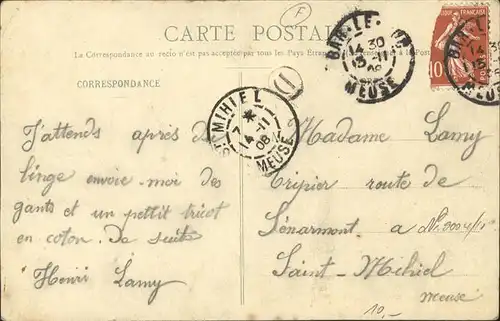 CARTE POSTALE
La Correspondance au recto n'est pas acceptée par tous les Pays
CORRESPONDANCE
F
BAR-LE
14 30
13-11
08
MEUSE
10
POSTES
D
ST MIHIEL
7 *
14-11
08
MEUSE
J'attends après de
linge envoie-moi des
gants et un pettit tricot
en coton. De suite
Henri Lamy
Madame Lamy
Tripier route de
Sénarmont. a
Saint-Mihiel
Meuse
10,-